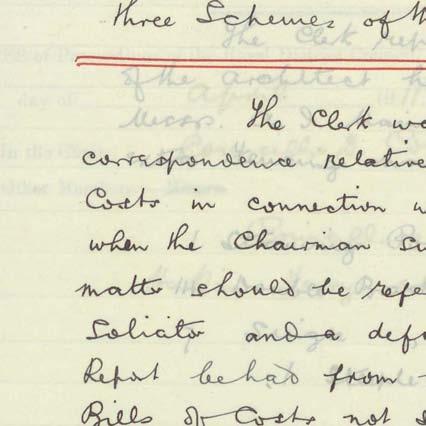 Three Schemes of th
The Clerk we
correspondence relative
Costs in connection w
when the Chairman su
matter should be refe
Solicitor and a defi
Report be had from
Bills of Costs not s